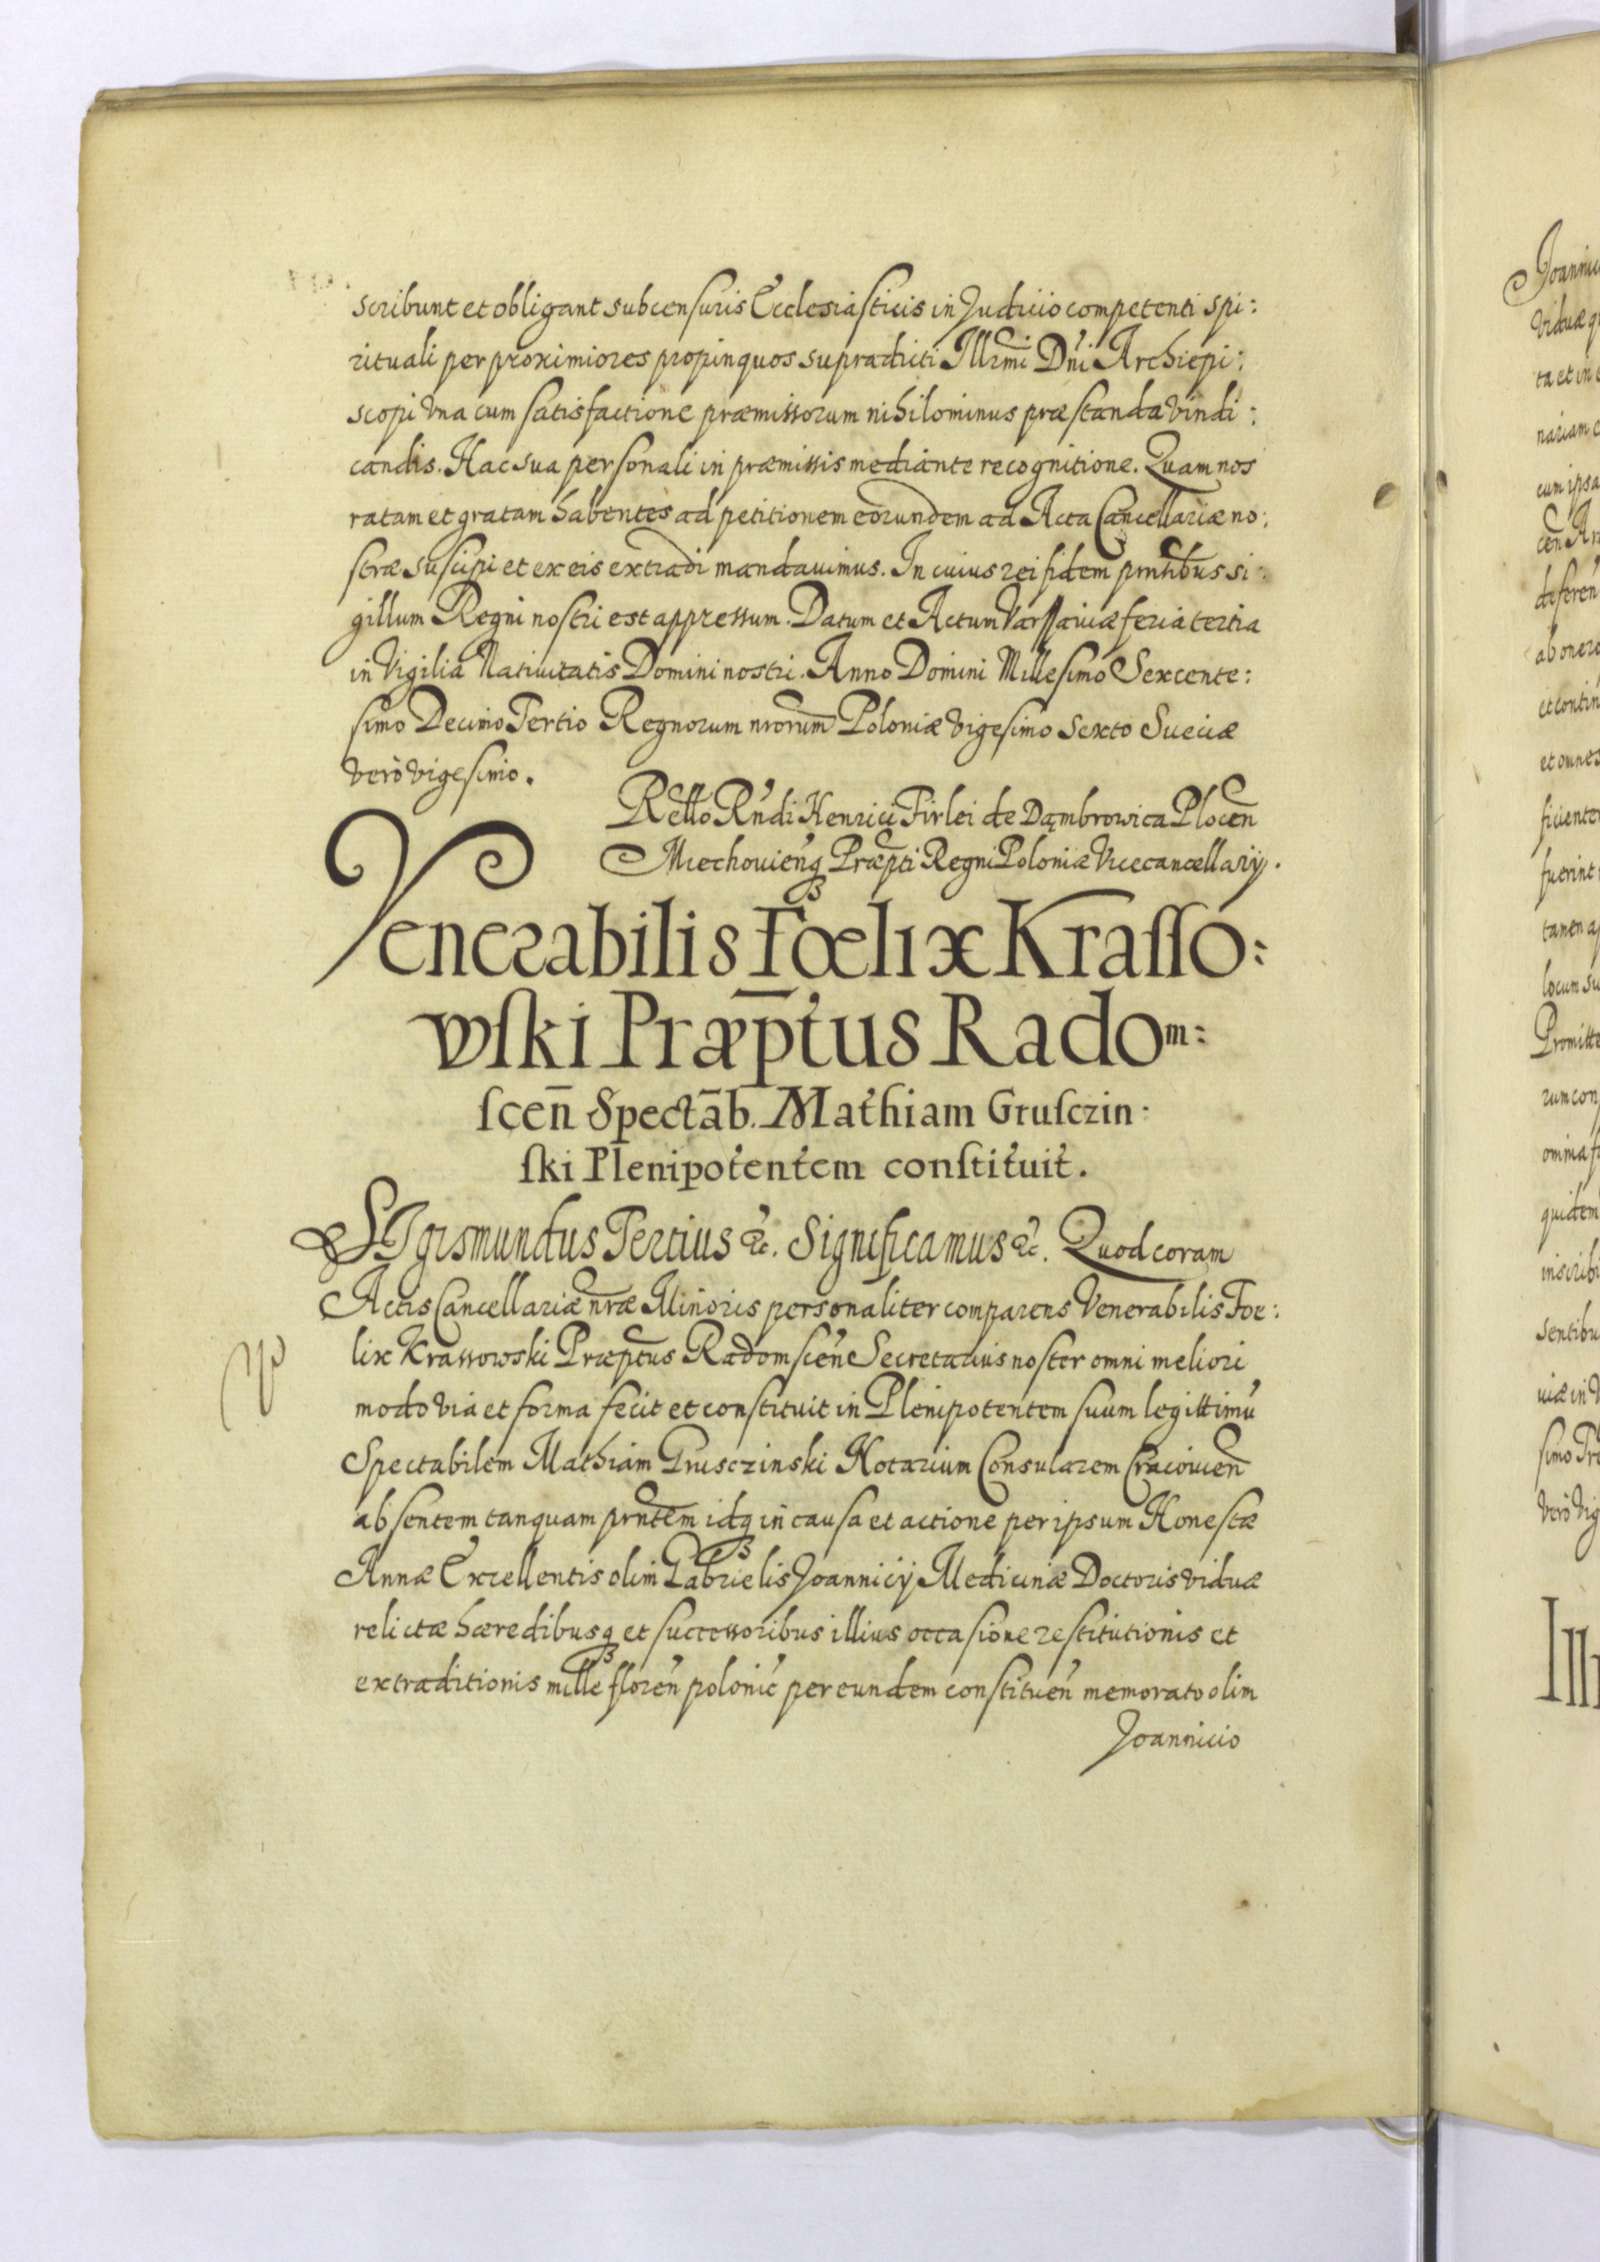 scribunt et obligant sub censuris Ecclesiasticis in Judicio competenti spi:
rituali per proximiores propinquos supradicti Illrmi Dni Archiepi:
scopi vna cum satisfactione præmissorum nihilominus præstanda vindi:
candis. Hac sua personali in præmissis mediante recognitione. Quam nos
ratam et gratam habentes ad petitionem eorundem ad Acta Cancellariæ no:
stræ suscipi et ex eis extradi mandauimus. In cuius rei fidem prntibus si:
gillum Regni nostri est appressum. Datum et Actum Varssauiæ feria tertia
in Vigilia Natiuitatis Domini nostri. Anno Domini Millesimo Sexcente:
simo Decimo Tertio Regnorum nrorum Poloniæ vigesimo sexto Sueciæ
verò vigesimo.
Rndi Henrici Firlei de Dąmbrowica Plocen̄
Miechouienq̃ Præpti Regni Poloniæ Vicecancellarij.
Venerabilis Fœlix Krasso:
wski Præp̄tus Radom:
scen̄ Spectāb. Mathiam Grusczin:
ski Plenipotentem constituit.
SIgismundus Tertius &c. Significamus &c. Quod coram
Actis Cancellariæ nræ Minoris personaliter comparens Venerabilis Foe:
lix Krassowski Præptus Radomscen̄ Secretarius noster omni meliori
modo via et forma fecit et constituit in Plenipotentem suum legittimū
Spectabilem Mathiam Grusczinski Notarium Consularem Cracouien̄
absentem tanquam prntem idq̃ in causa et actione per ipsum Honestæ
Annæ Excellentis olim Gabrielis Joannicij Medicinæ Doctoris viduæ
relictæ hæredibusq̃ et successoribus illius occasione restitutionis et
extraditionis mille floren̄ polonic̄ per eundem constituen̄ memorato olim
Joannicio